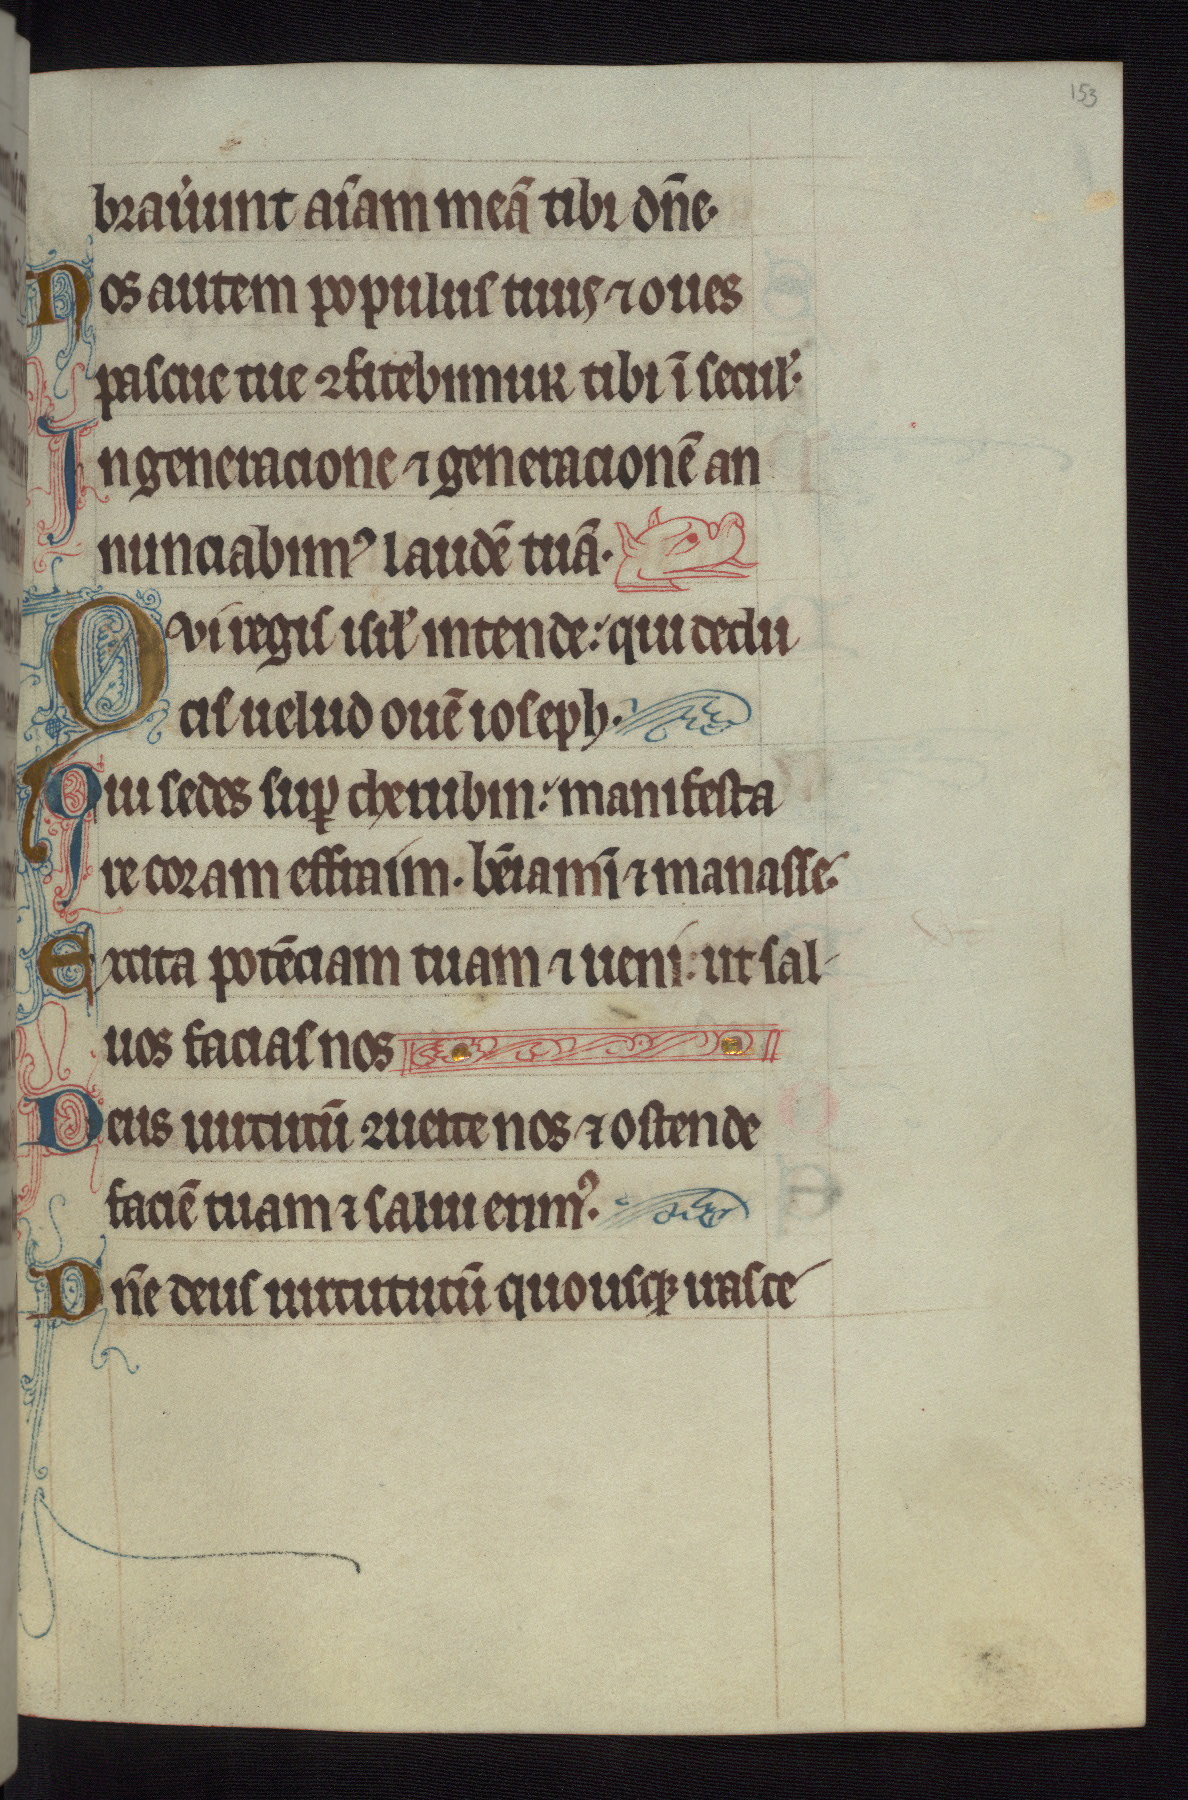 153
braũunt aĩam meã tibi dñe.
Nos autem populus tuus ⁊ oues
pascue tue ꝯfitebimur tibi ĩ secul̃.
In generacione ⁊ generacionẽ an
nunciabimꝰ laudẽ tuã.
Qvi regis isrl̃ intende: qui dedu
cis uelud ouẽ ioseph.
Qui sedes suꝑ cherubin: manifesta
re coram effraim. bẽiamĩ ⁊ manasse.
Excita potẽciam tuam ⁊ ueni: ut sal-
uos facias nos
Deus uirtutũ ꝯuerte nos ⁊ ostende
faciẽ tuam ⁊ salui erimꝰ.
Dñe deus uirtututũ quousqꝫ irasce